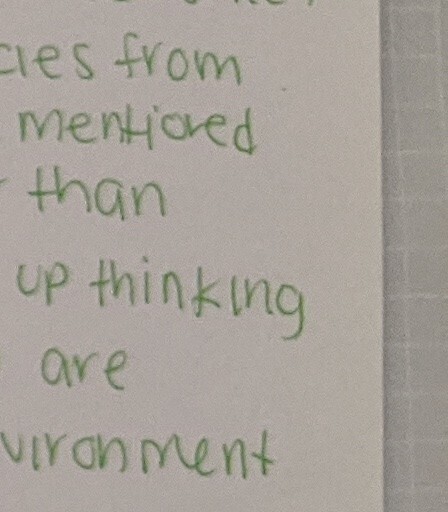 cies from
mentioned
than
up thinking
are
vironment